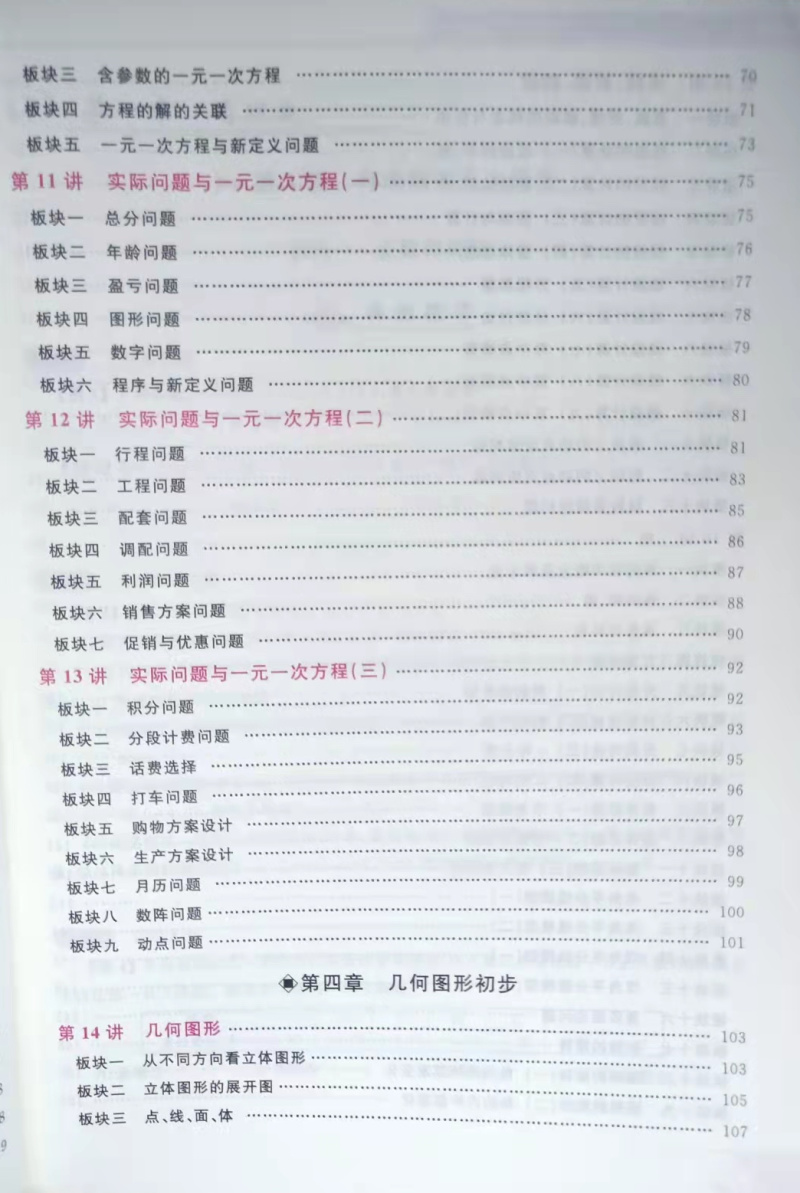 板块三 含参数的一元一次方程 …… 70
板块四 方程的解的关联 …… 71
板块五 一元一次方程与新定义问题 …… 73
第11讲 实际问题与一元一次方程(一) …… 75
板块一 总分问题 …… 75
板块二 年龄问题 …… 76
板块三 盈亏问题 …… 77
板块四 图形问题 …… 78
板块五 数字问题 …… 79
板块六 程序与新定义问题 …… 80
第12讲 实际问题与一元一次方程(二) …… 81
板块一 行程问题 …… 81
板块二 工程问题 …… 83
板块三 配套问题 …… 85
板块四 调配问题 …… 86
板块五 利润问题 …… 87
板块六 销售方案问题 …… 88
板块七 促销与优惠问题 …… 90
第13讲 实际问题与一元一次方程(三) …… 92
板块一 积分问题 …… 92
板块二 分段计费问题 …… 93
板块三 话费选择 …… 95
板块四 打车问题 …… 96
板块五 购物方案设计 …… 97
板块六 生产方案设计 …… 98
板块七 月历问题 …… 99
板块八 数阵问题 …… 100
板块九 动点问题 …… 101
第四章 几何图形初步
第14讲 几何图形 …… 103
板块一 从不同方向看立体图形 …… 103
板块二 立体图形的展开图 …… 105
板块三 点、线、面、体 …… 107